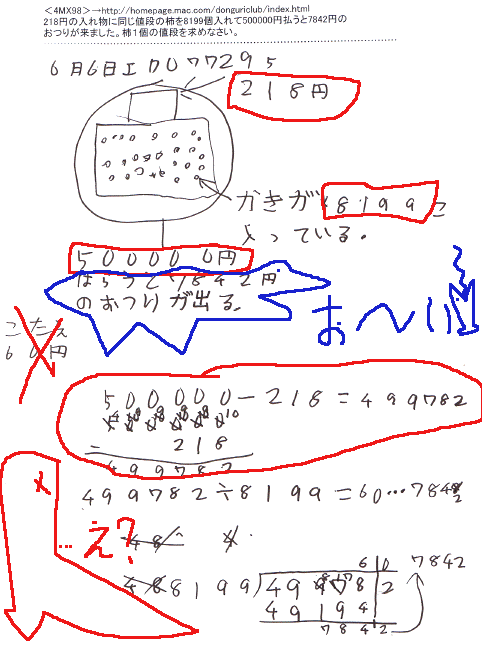 <4MX98>→http://homepage.mac.com/donguriclub/index.html
218円の入れ物に同じ値段の柿を8199個入れて500000円払うと7842円の
おつりが来ました。柿1個の値段を求めなさい。
6月6日エDO77295
218円
かきが8199こ
入っている.
500000円
はらうと7842円
のおつりが出る.
お〜い!!
こたえ
60円
500000-218=499782
- 218
499782
499782÷8199=60…7842
え?
60 7842
8199 499782
49194
7842